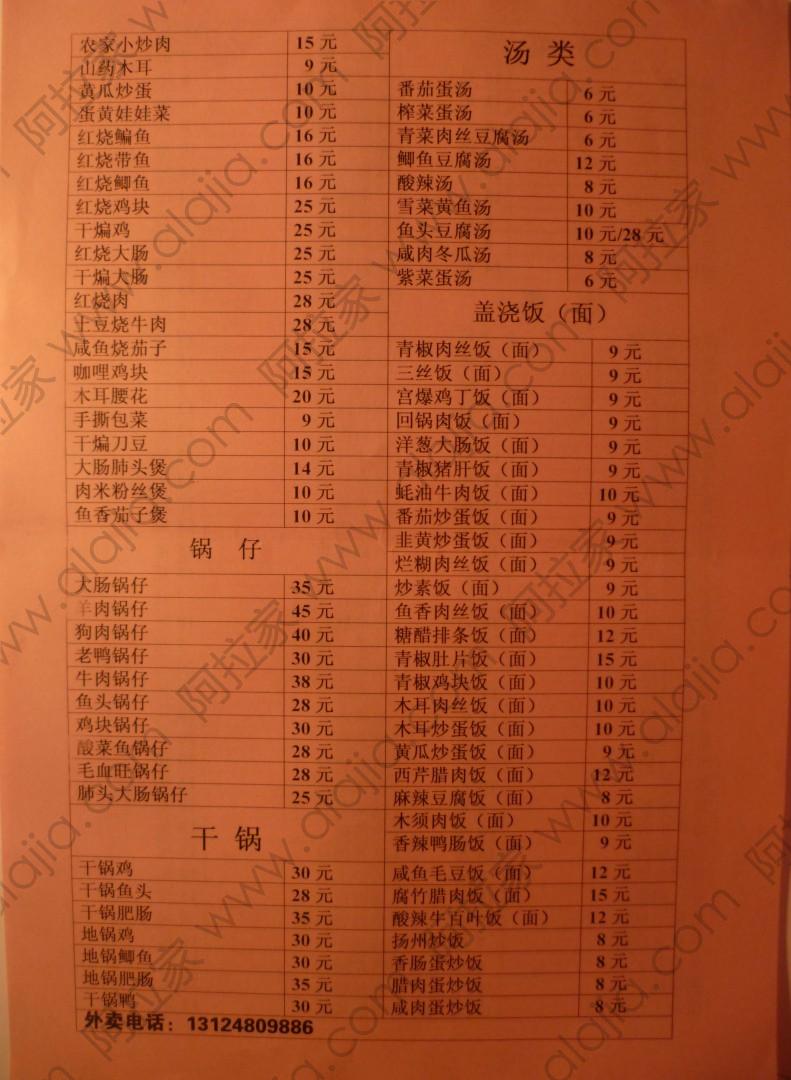 农家小炒肉 15 元
山药木耳 9 元
黄瓜炒蛋 10 元
蛋黄娃娃菜 10 元
红烧鳊鱼 16 元
红烧带鱼 16 元
红烧鲫鱼 16 元
红烧鸡块 25 元
干煸鸡 25 元
红烧大肠 25 元
干煸大肠 25 元
红烧肉 28 元
土豆烧牛肉 28 元
咸鱼烧茄子 15 元
咖哩鸡块 15 元
木耳腰花 20 元
手撕包菜 9 元
干煸刀豆 10 元
大肠肺头煲 14 元
肉米粉丝煲 10 元
鱼香茄子煲 10 元
锅 仔
大肠锅仔 35 元
羊肉锅仔 45 元
狗肉锅仔 40 元
老鸭锅仔 30 元
牛肉锅仔 38 元
鱼头锅仔 28 元
鸡块锅仔 30 元
酸菜鱼锅仔 28 元
毛血旺锅仔 28 元
肺头大肠锅仔 25 元
干 锅
干锅鸡 30 元
干锅鱼头 28 元
干锅肥肠 35 元
地锅鸡 30 元
地锅鲫鱼 30 元
地锅肥肠 35 元
干锅鸭 30 元
外卖电话：13124809886
汤 类
番茄蛋汤 6 元
榨菜蛋汤 6 元
青菜肉丝豆腐汤 6 元
鲫鱼豆腐汤 12 元
酸辣汤 8 元
雪菜黄鱼汤 10 元
鱼头豆腐汤 10 元/28 元
咸肉冬瓜汤 8 元
紫菜蛋汤 6 元
盖浇饭（面）
青椒肉丝饭（面） 9 元
三丝饭（面） 9 元
宫爆鸡丁饭（面） 9 元
回锅肉饭（面） 9 元
洋葱大肠饭（面） 9 元
青椒猪肝饭（面） 9 元
蚝油牛肉饭（面） 10 元
番茄炒蛋饭（面） 9 元
韭黄炒蛋饭（面） 9 元
烂糊肉丝饭（面） 9 元
炒素饭（面） 9 元
鱼香肉丝饭（面） 10 元
糖醋排条饭（面） 12 元
青椒肚片饭（面） 15 元
青椒鸡块饭（面） 10 元
木耳肉丝饭（面） 10 元
木耳炒蛋饭（面） 10 元
黄瓜炒蛋饭（面） 9 元
西芹腊肉饭（面） 12 元
麻辣豆腐饭（面） 8 元
木须肉饭（面） 10 元
香辣鸭肠饭（面） 9 元
咸鱼毛豆饭（面） 12 元
腐竹腊肉饭（面） 15 元
酸辣牛百叶饭（面） 12 元
扬州炒饭 8 元
香肠蛋炒饭 8 元
腊肉蛋炒饭 8 元
咸肉蛋炒饭 8 元
阿拉家 www.alajia.com